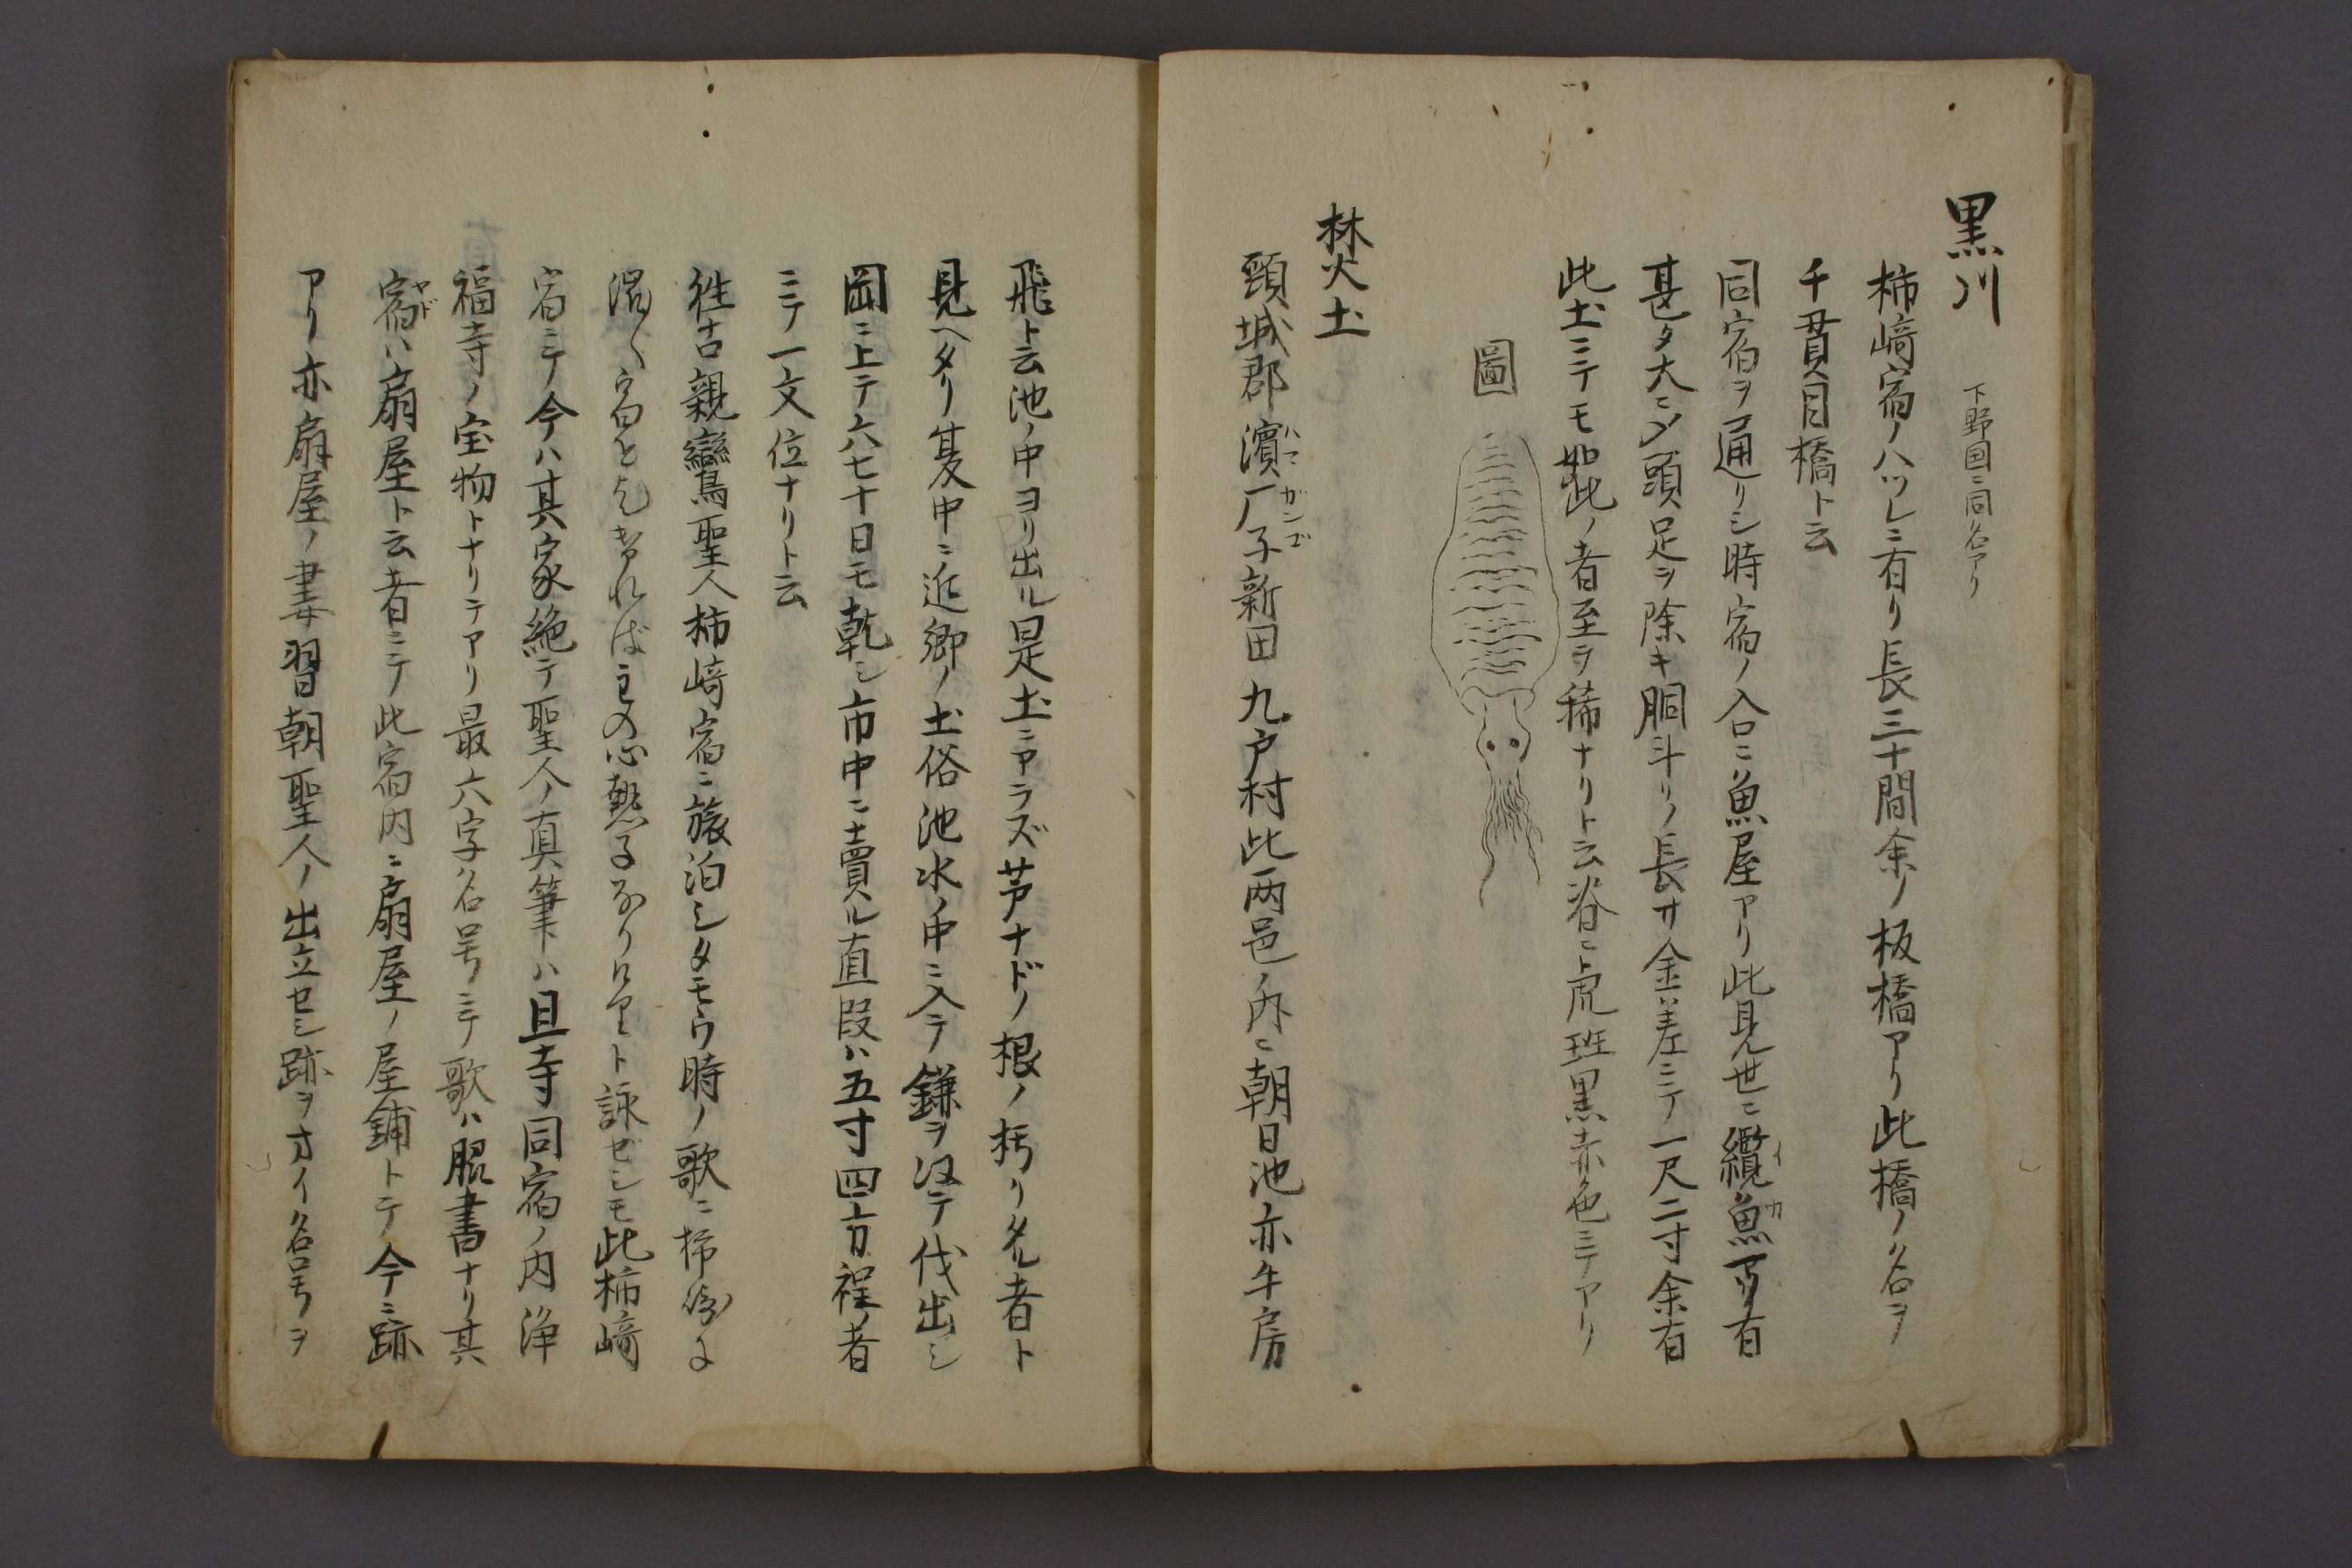 黒川 下野国ニ同名アリ
柿﨑宿ノハツレニ有リ長三十間余ノ板橋アリ此橋ノ名ヲ
千貫目橋ト云
同宿ヲ通リシ時宿ノ入口ニ魚屋アリ此見世ニ纜魚アリ有
甚タ大ニメ頭足ヲ除キ胴斗リノ長サ金差ニテ一尺二寸余有
此土ニテモ如此ノ者至ヲ稀ナリト云脊ニ虎班黒赤色ニテアリ
圖
焚土
頸城郡濱厂子新田九戸村此両邑ノ内ニ朝日池亦牛房
飛ト云池ノ中ヨリ出ル是土ニアラズ芽ナドノ根ノ朽リタル者ト
見ヘタリ夏中ニ近郷ノ土俗池水ノ中ニ入テ鎌ヲ以テ伐出シ
岡ニ上テ六七十日モ乾シ市中ニ賣ル直段ハ五寸四方程ノ者
ニテ一文位ナリト云
徃古親鸞聖人柿﨑宿ニ旅泊シタモウ時ノ歌ニ柿崎に
澁〳〵宿をとりければ主の心熟子なりけり ト詠ゼシモ此柿﨑
宿ニテ今ハ其家絶テ聖人ノ真筆ハ且寺同宿ノ内浄
福寺ノ宝物トナリテアリ最六字名号ニテ歌ハ脇書ナリ其
宿ハ扇屋ト云者ニテ此宿内ニ扇屋ノ屋鋪トテ今ニ跡
アリ亦扇屋ノ妻翌朝聖人ノ出立セシ跡ヲオイ名号ヲ